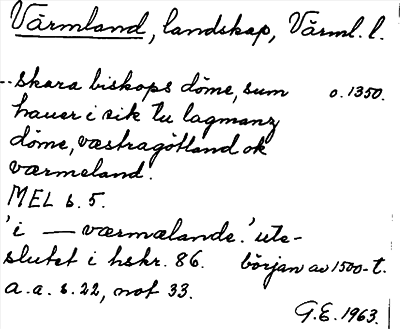 Värmland, landskap, Värml. l.
--skara biskops döme, sum o. 1350.
hauer i sik tu lagmanz
döme, væstragötland ok
værmeland.
MEL s. 5.
'i — værmælande.' ute-
slutet i hskr. 86. början av 1500-t.
a. a. s. 22, not 33.
G.E. 1963.